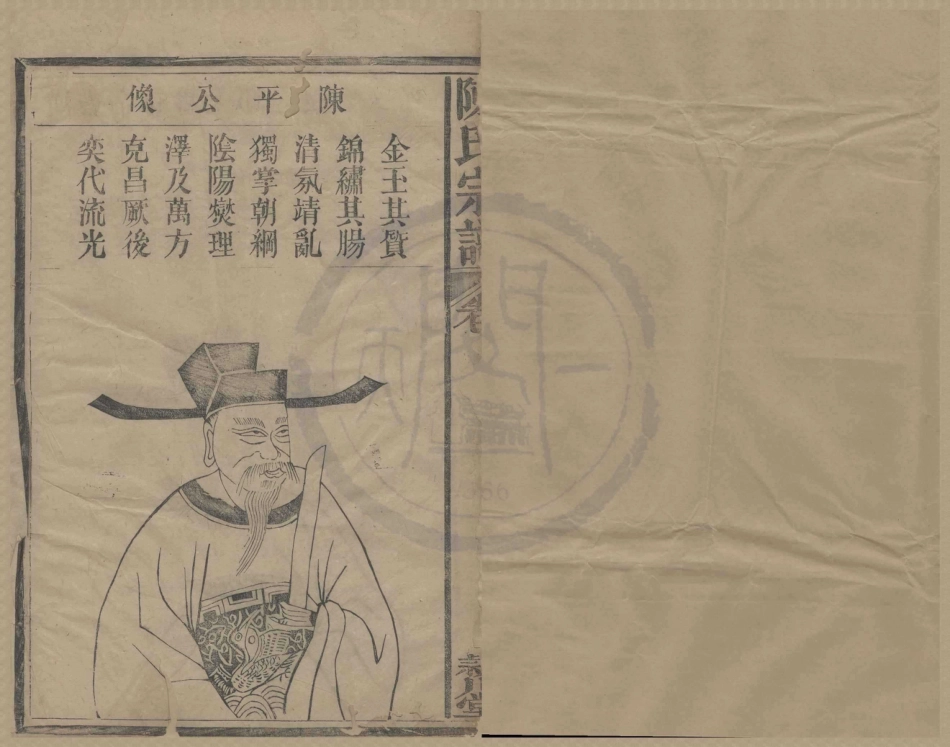 陳氏宗譜
卷
陳平公像
金玉其質
錦繡其腸
清氛靖亂
獨掌朝綱
陰陽燮理
澤及萬方
克昌厥後
奕代流光